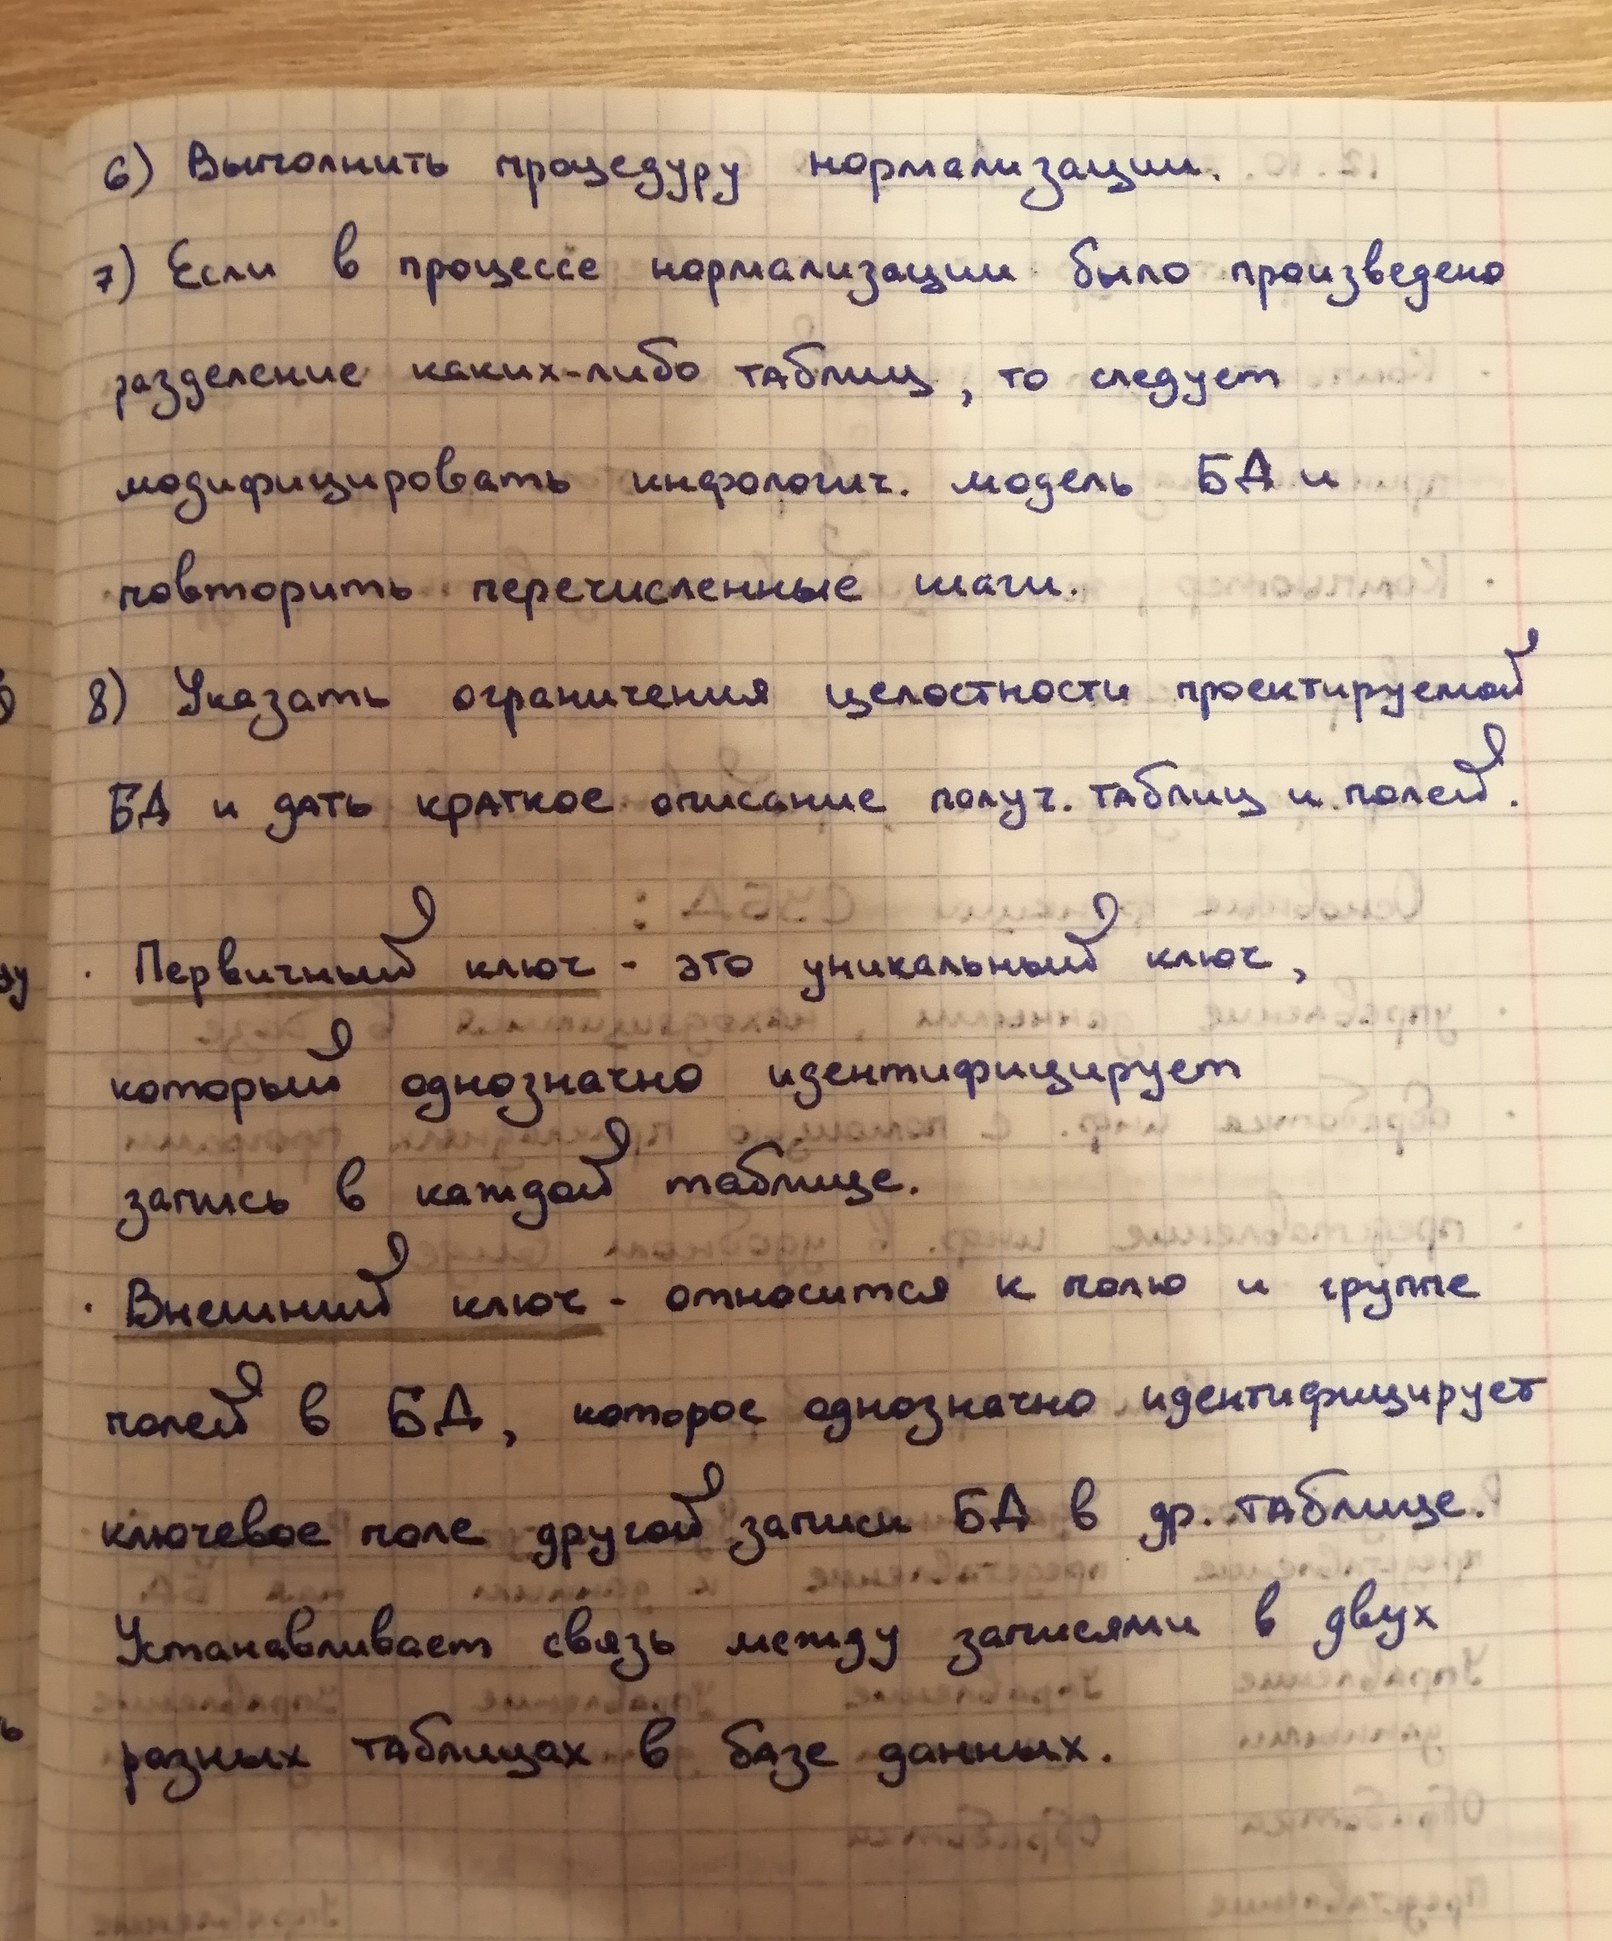 6) Выполнить процедуру нормализации.
7) Если в процессе нормализации было произведено
разделение каких-либо таблиц, то следует
модифицировать инфологич. модель БД и
повторить перечисленные шаги.
8) Указать ограничения целостности проектируемой
БД и дать краткое описание получ. таблиц и полей.
· Первичный ключ - это уникальный ключ,
который однозначно идентифицирует
запись в каждой таблице.
· Внешний ключ - относится к полю и группе
полей в БД, которое однозначно идентифицирует
ключевое поле другой записи БД в др. таблице.
Устанавливает связь между записями в двух
разных таблицах в базе данных.